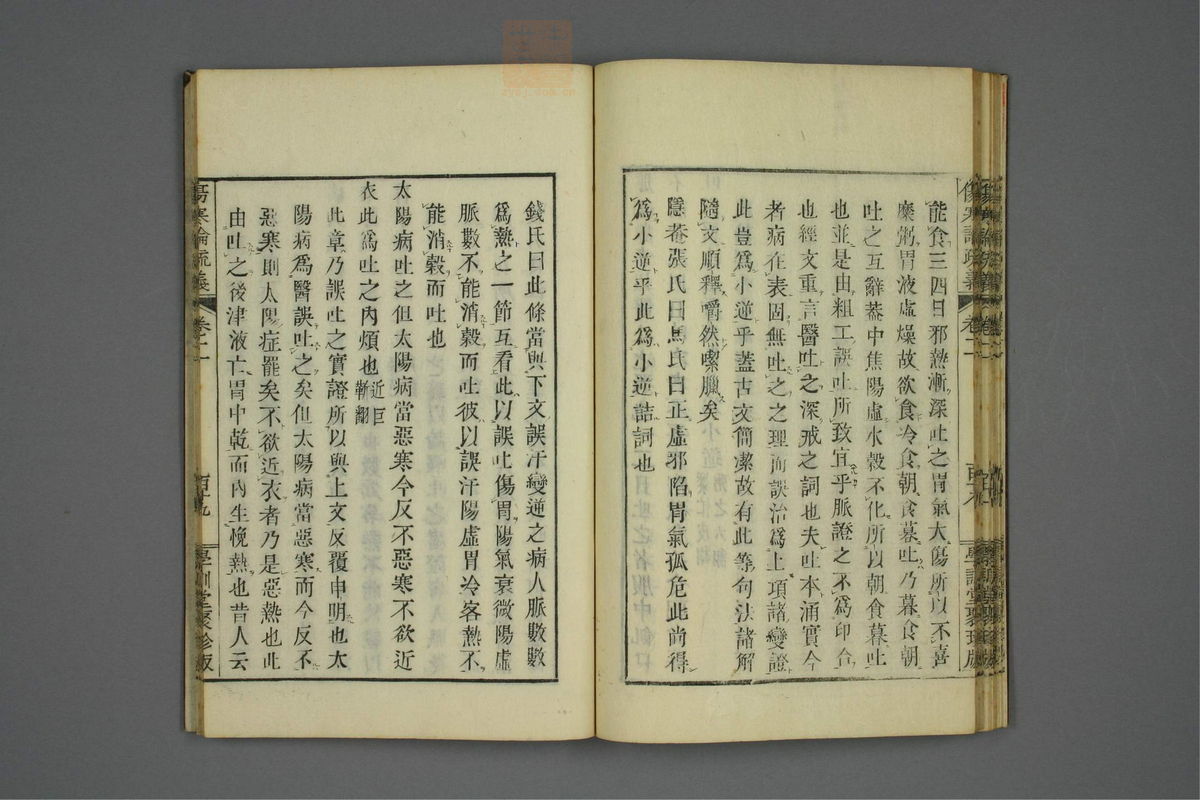 能食三四日邪熱漸深吐之胃氣大傷所以不喜
糜粥胃液虛燥故欲食冷食朝食暮吐乃暮食朝
吐之互辭葢中焦陽虛水穀不化所以朝食暮吐
也並是由粗工誤吐所致宜乎脈證之不爲印合
也經文重言醫吐之深戒之詞也夫吐本涌實今
者病在表固無吐之之理而誤治爲上項諸變證
此豈爲小逆乎蓋古文簡潔故有此等句法諸解
隨文順釋嚼然喫臘矣
隱菴張氏曰馬氏曰正虛邪陷胃氣孤危此尚得
爲小逆乎此爲小逆詰詞也
錢氏曰此條當與下文誤汗變逆之病人脈數數
爲熱之一節互看此以誤吐傷胃陽氣衰微陽虛
脈數不能消穀而吐彼以誤汗陽虛胃冷客熱不
能消穀而吐也
太陽病吐之但太陽病當惡寒今反不惡寒不欲近
衣此爲吐之內煩也近巨靳翻
此章乃誤吐之實證所以與上文反覆申明也太
陽病爲醫誤吐之矣但太陽病當惡寒而今反不
惡寒則太陽症罷矣不欲近衣者乃是惡熱也此
由吐之後津液亡胃中乾而內生悗熱也昔人云
傷寒論疏義
卷之二
學訓堂聚珍版